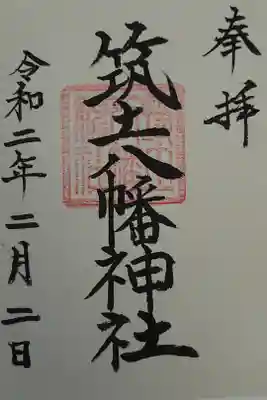 奉拝
筑土八幡神社
令和二年二月二日